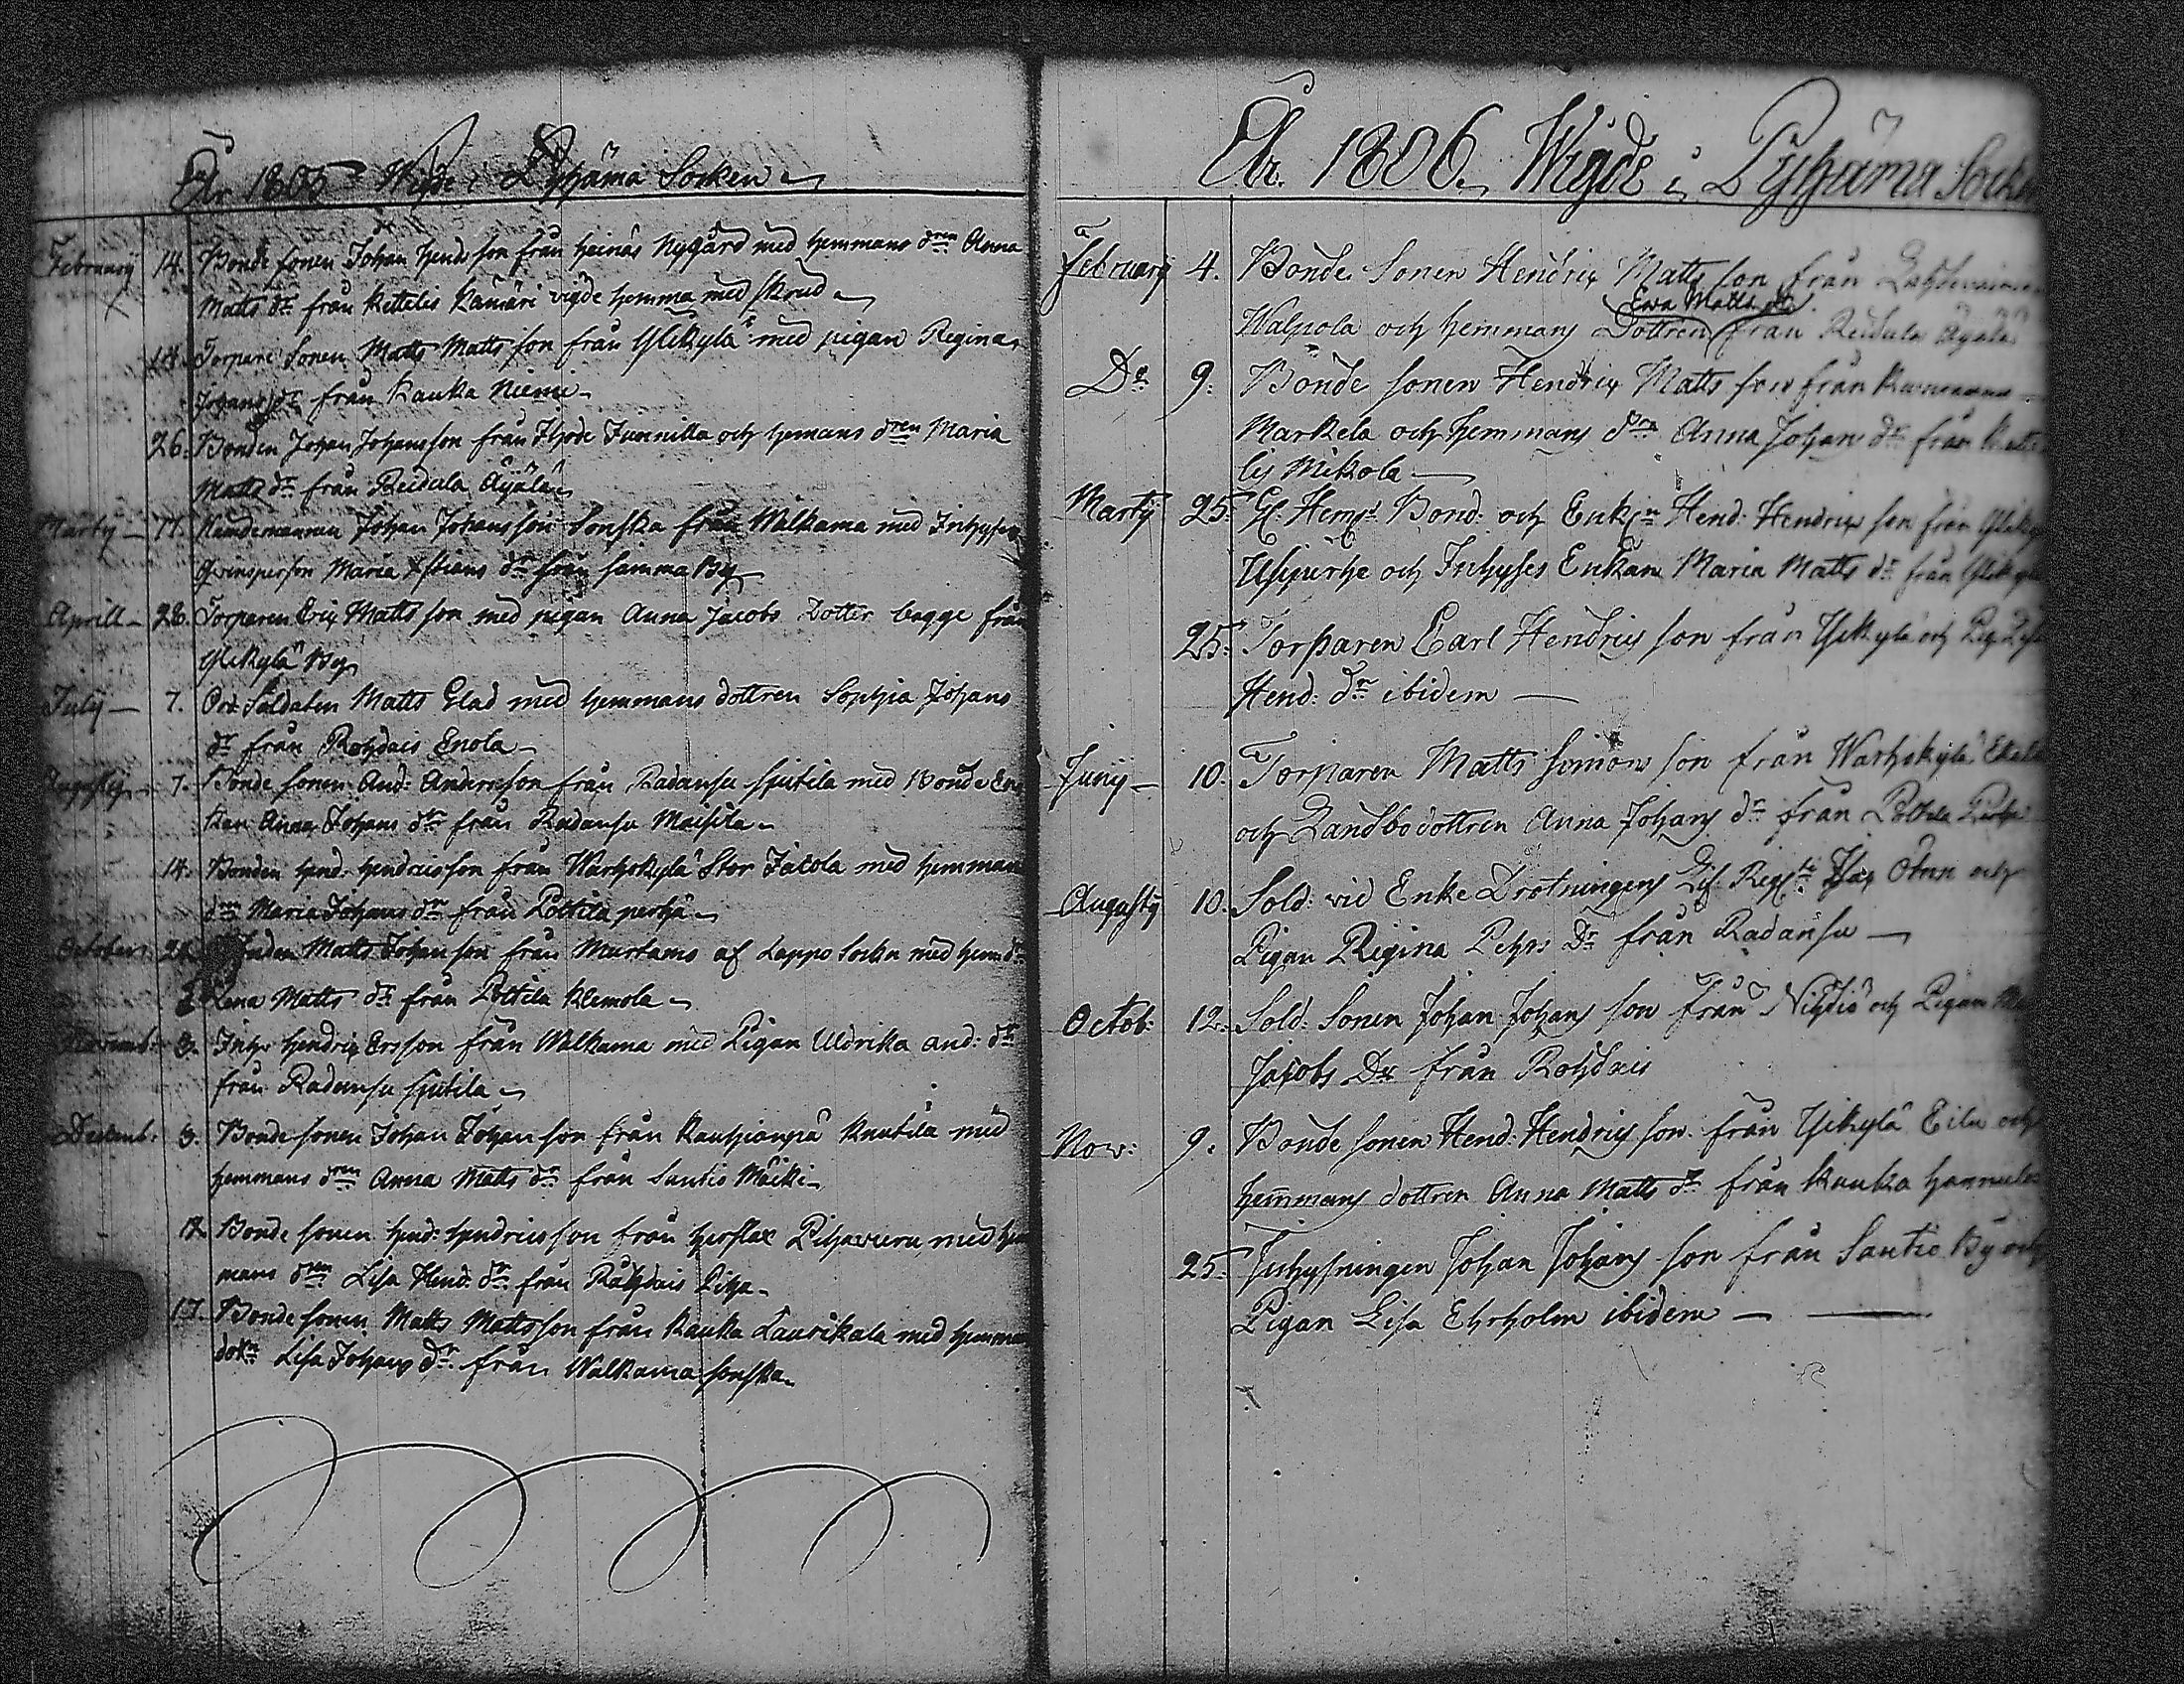 År 1805 Wigde i Pyhäma Socken
Februarij 14. Bonde sonen Johan Hendrsson från Heinäs Nygård med hemmans dren Anna
Matts dr från Kettelis Kamäri vigde hemma med skrud
14. Torpare Sonen Matts Mattsson från Ylikylä med pigan Regina
Johans dr från Kauka Niemi
26. Bonden Johan Johansson från Ihode Junnilla och hemans dren Maria
Matts dr från Reidula Äyälä
Martij 17. Nämdemannen Johan Johansson Sonska från Walkama med Inhyses
Qvinsperson Maria dr från samma By
Aprill 28. Torparen Eric Mattsson med pigan Anna Jacobs Dotter begge från
Ylikylä By
July 7. Soldaten Matts Glad med hemmans dottren Sophia Johans
dr från Rohdais Enola
Augusty 7. Bonde sonen And: Andersson från Radansu Sjutila med Bonde En
kan Anna Johans dr från Radansu Maisila
14. Bonden Hend: Hendricsson från Warhokylä Stor Jacola med hemmans
dren Maria Johans dr från Pottila perhä
October Matts Johansson från Murtamo af Lappo Sockn med hem: dr
Lena Matts dr från Pottila Klemola
Novemb: 3. Inhys Hendric Ersson från Walkama med Pigan Uldrika And: dr
från Radansu Sjutila
Decemb: 3. Bonde sonen Johan Johansson från Kauhianpiä Knutila med
hemmans dren Anna Matts dr från Santio Mäcki
12. Bonde sonen Hend: Hendricsson från Pihavuru med hem
mans dren Lisa Hend: dr från Rohdais Piha
17. Bonde sonen Matts Mattsson från Kauka Laurikala med hemman
dotn Lisa Johans dr från Walkama Sonska
År 1806 Wigde i Pyhäma Socken
February 4. Bonde Sonen Hendric Mattsson från
Ewa Matts dr
Walpola och hemmans Dottren från Reidula Äyälä
Do 9. Bonde sonen Hendric Mattsson från
Markela och hemmans dren Anna Johans dr från Kette
lis Mikola
Marty 25. Bond: och Enkn Hend: Hendricsson från Ylikylä
Uspurhe och Inhyses Enkan Maria Matts dr från Ylikylä
25. Torparen Carl Hendricsson från Ylikylä och Pig.
Hend: dr ibidem
Juny 10. Torparen Matts Simonsson från Warhokylä
och Landbodottren Anna Johans dr från Pottila
Augusty 10. Sold: vid Enke Drotningens Lif Regte och
Pigan Regina Pehrs Dr från Radansu
Octob: 12. Sold: Sonen Johan Johansson från Nihtiö och Pigan
Jacobs Dr från Rohdais
Nov: 9. Bonde sonen Hend: Hendricsson från Ylikylä Eilu och
hemmans dottren Anna Matts dr från Kauka Hannula
25. Inhysningen Johan Johansson från Santio By och
Pigan Lisa Ehrholm ibidem